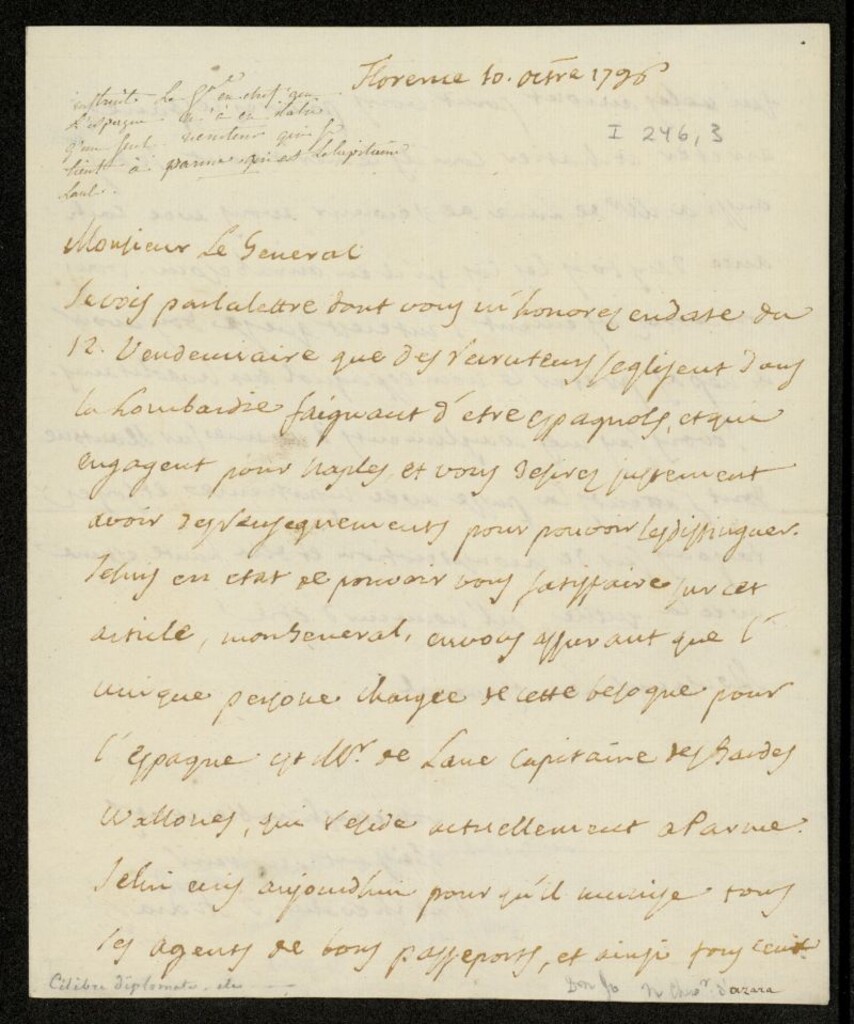 Florence 10. octbre 1796
I 246, 3
instruit le Gral en chef que
l'espagne n'a en italie
qu'un seul qui se
tient à parme qui est le capitaine
Laue.
Monsieur le General
Je vois par la lettre dont vous m'honorez en date du
12. Vendemiaire que des recruteurs se glissent dans
la Lombardie faignant d'etre espagnols, et qui
engagent pour Naples, et vous desirez justement
avoir des renseignements pour pouvoir les distinguer.
Je suis en etat de pouvoir vous satisfaire sur cet
article, mon General, en vous assurant que l'
unique persone chargée de cette besogne pour
l'Espagne est Mr. de Laue Capitaine des Gardes
Wallones, qui reside actuellement a Parme.
Je lui ecris aujourdhui pour qu'il munisse tous
ses agents de bons passeports, et ainsi tous ceux
Célibre diplomate.
Don Chevr. d'azara